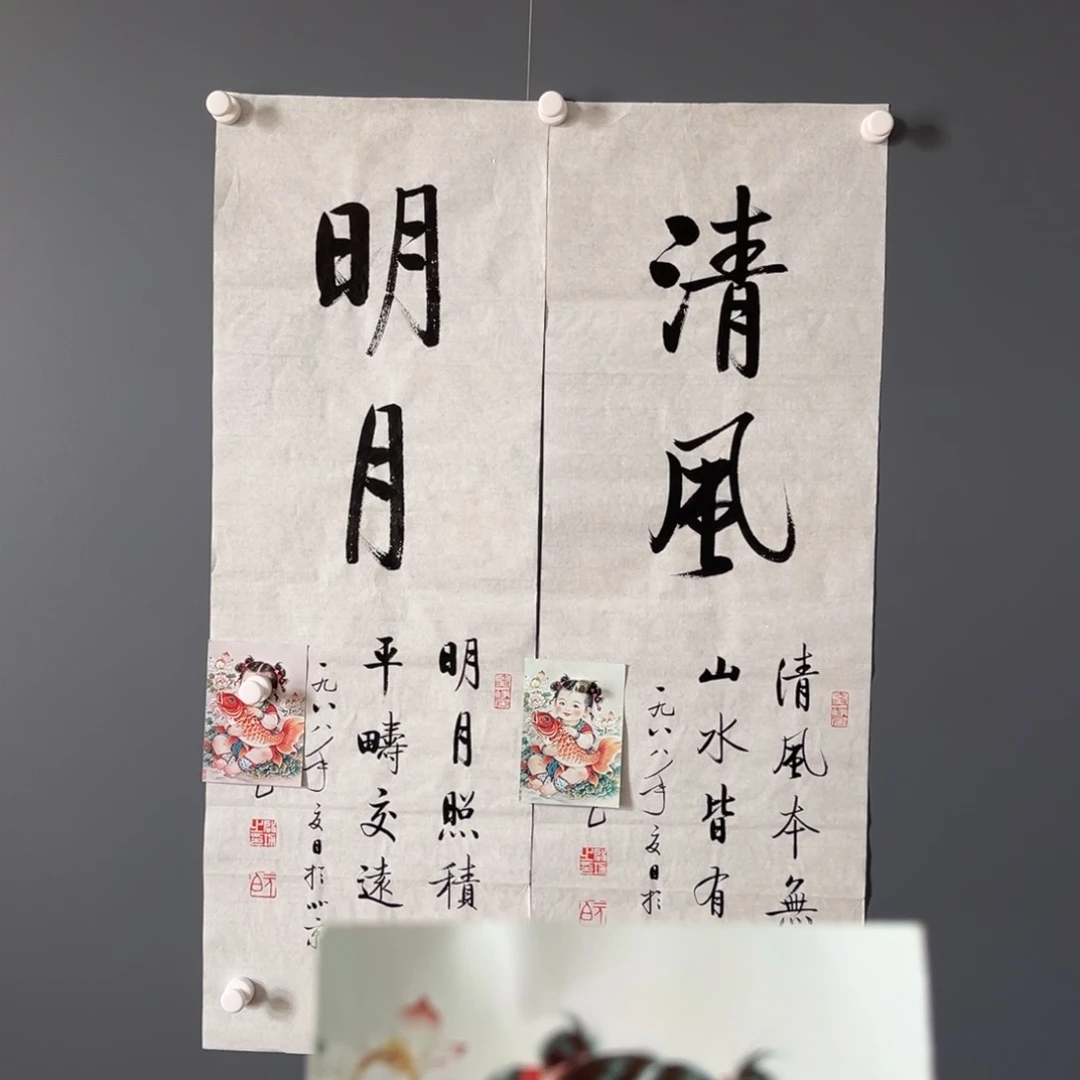 清風
清風本無
山水皆有
一九八八年夏日於
明月
明月照積
平疇交遠
一九八八年夏日於北京